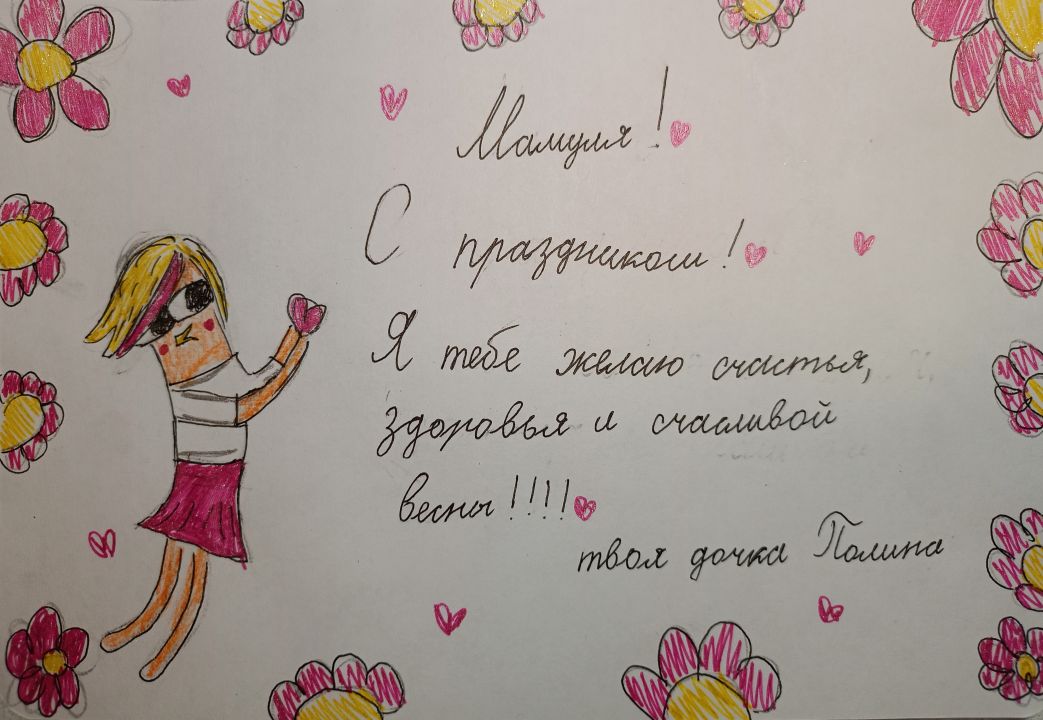 Мамуля!
С праздником!
Я тебе желаю счастья,
здоровья и счасливой
весны!!!!
твоя дочка Полина